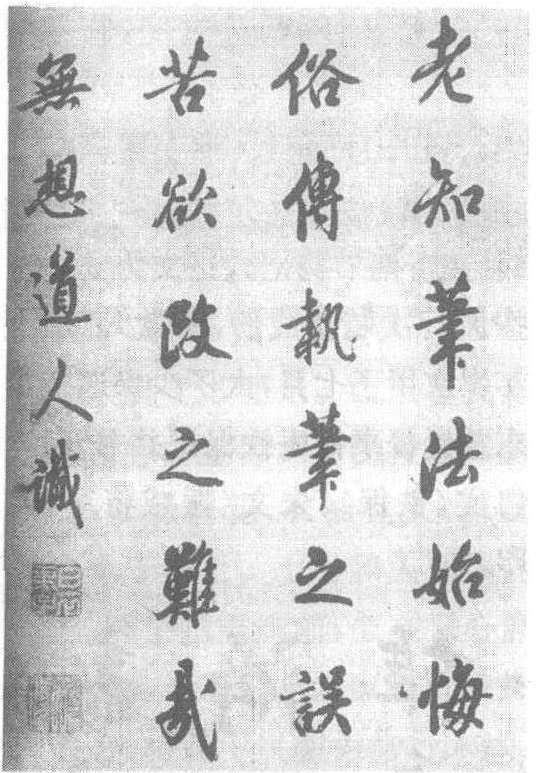 老知筆法始悔
俗傳執筆之誤
苦欲改之難哉
無想道人識